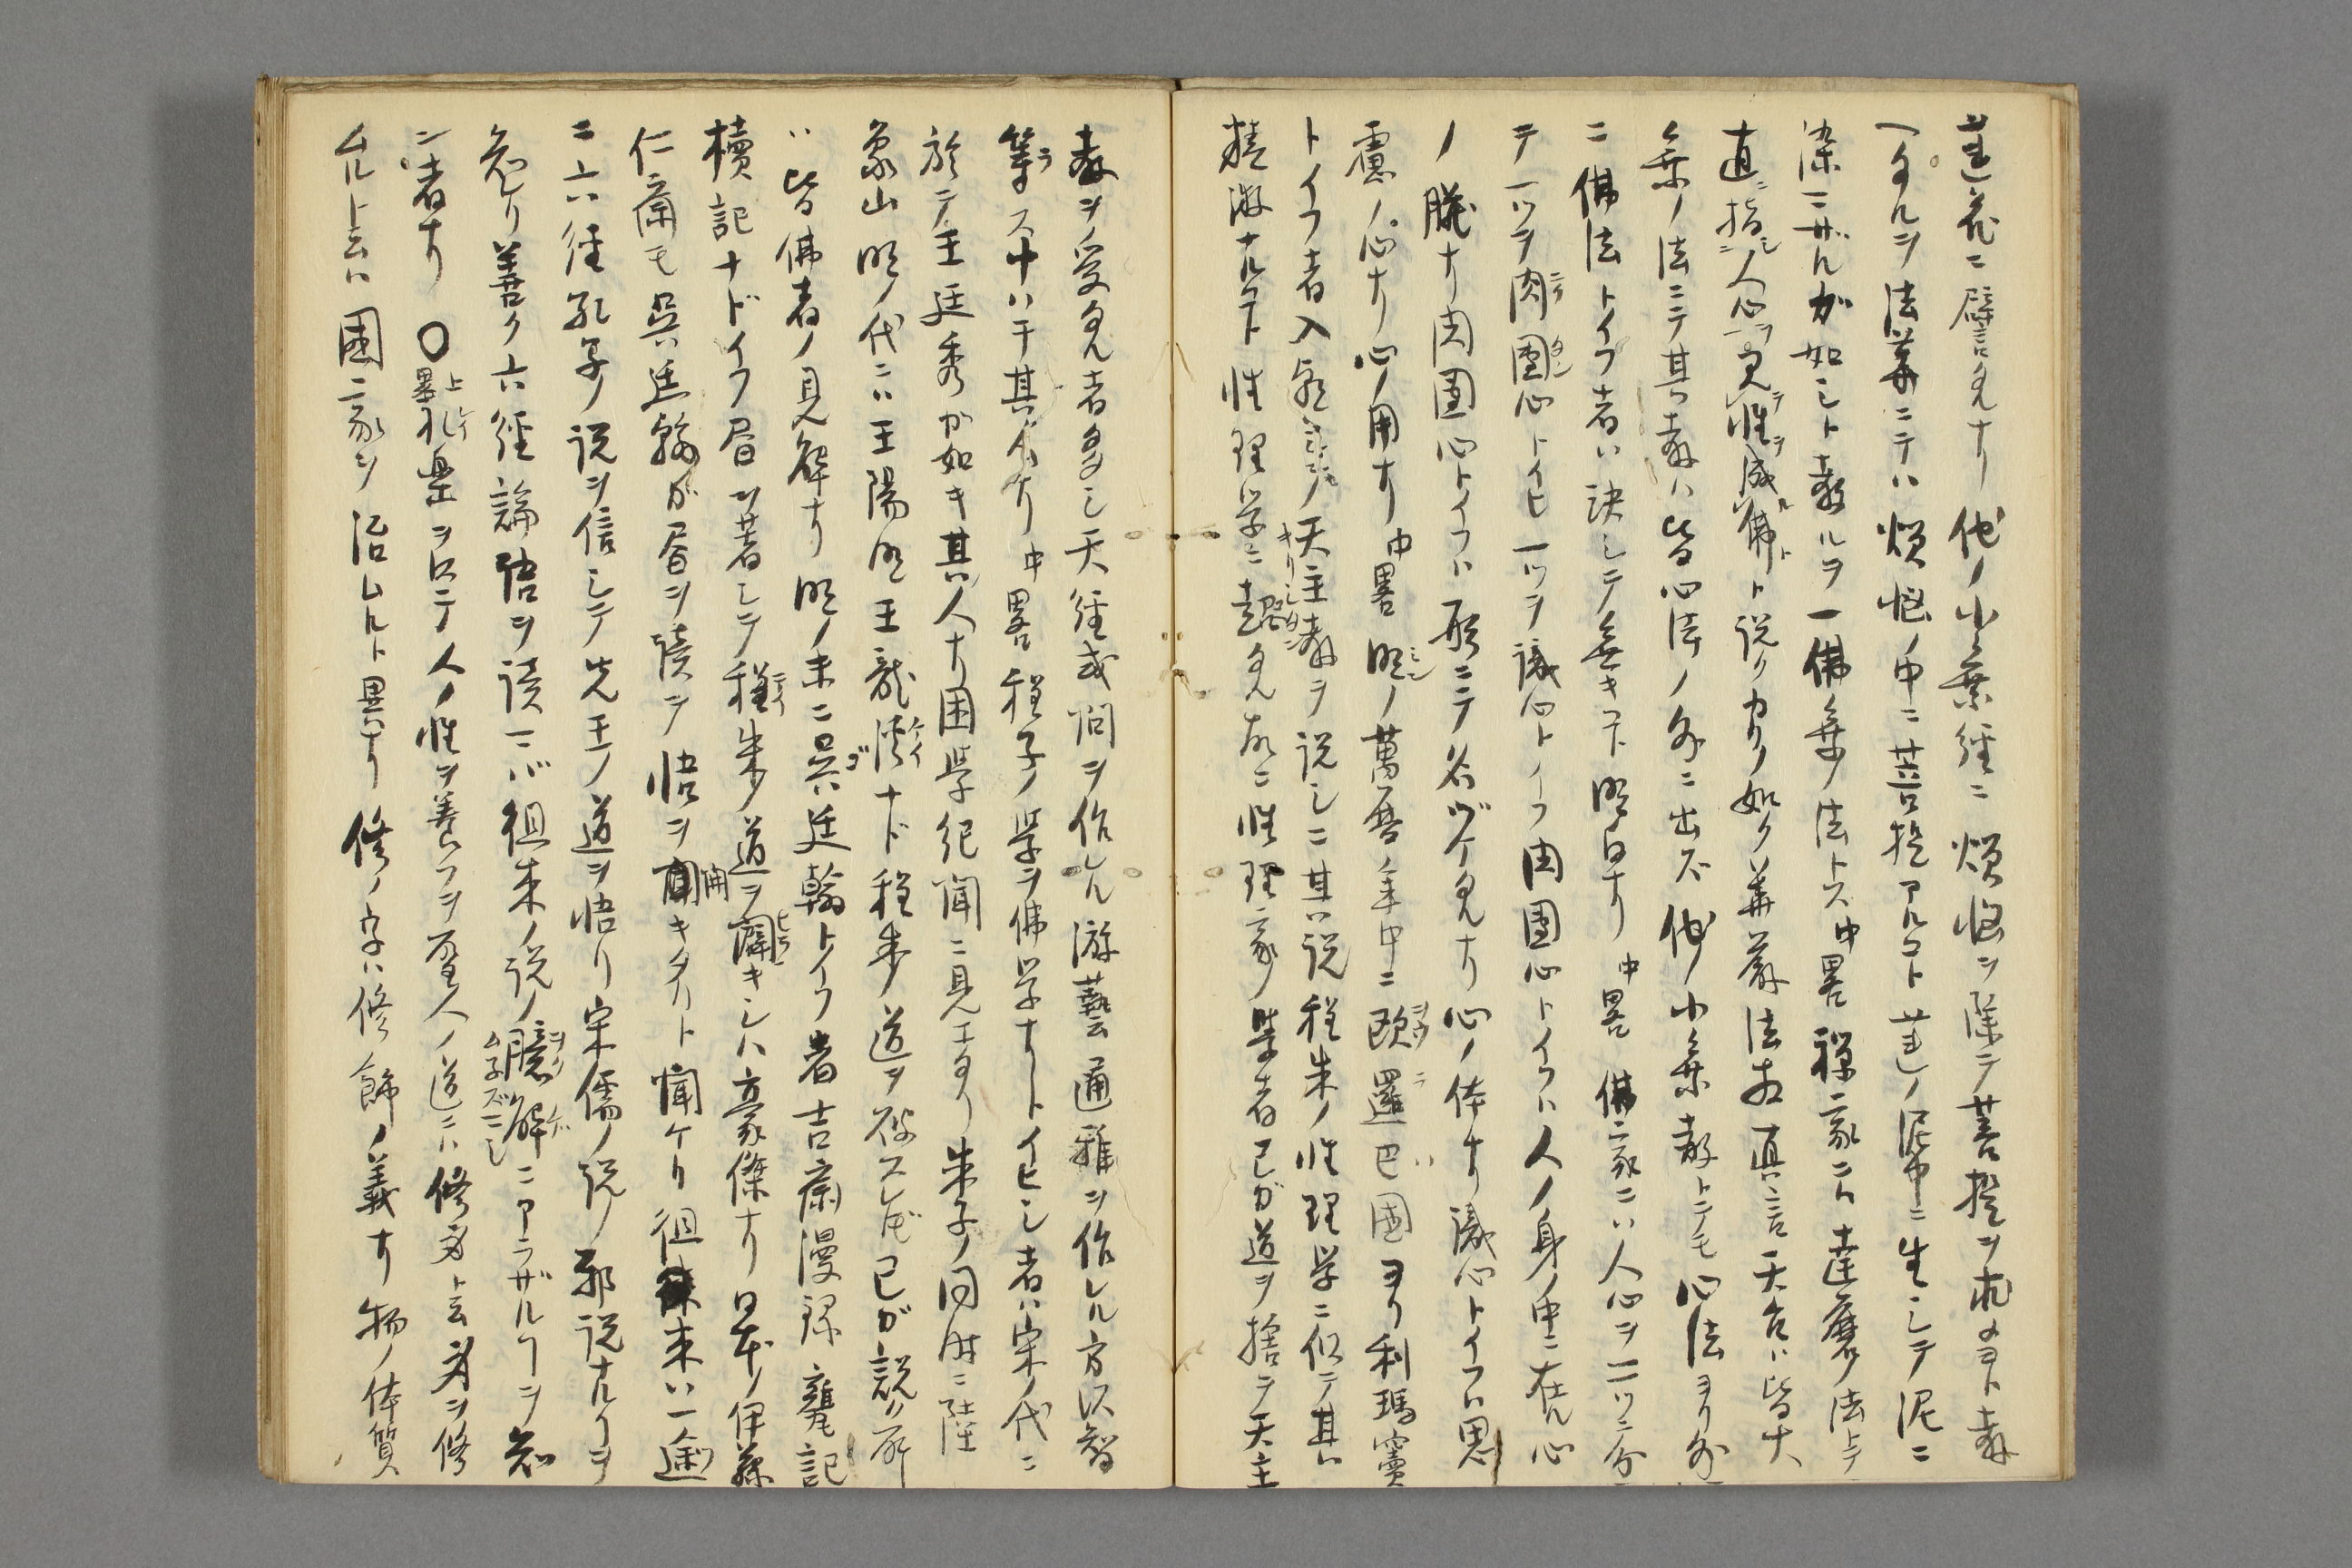 蓮花ニ譬タルナリ他ノ小乗経ニ煩悩ヲ除テ菩提ヲ求メヨト教
ヘタルヲ法華ニテハ煩悩ノ中ニ菩提アルコト蓮ノ泥中ニ生シテ泥ニ
染ミザルガ如シト教ルヲ一佛乗ノ法トス中畧禅家ニハ達磨ノ法トテ
直ニ指シ人心ヲ見テ性ヲ成ルト佛ト説クカクノ如ク華厳法相真言天台ハ皆大
乗ノ法ニテ其教ハ皆心法ノ外ニ出ズ他ノ小乗教トテモ心法ヨリ外
ニ佛法トイフ者ハ決シテ無キコト明白ナリ中畧佛家ニハ人心ヲ二ツニ分
テ一ツヲ肉團心トイヒ一ツヲ識心トイフ肉團心トイフハ人ノ身ノ中ニ在ル心
ノ臓ナリ肉團心トイフハ形ニテ名ヅケタルナリ心ノ体ナリ識心トイフハ思
慮ノ心ナリ心ノ用ナリ中畧明ノ萬暦年中ニ欧邏巴國ヨリ利瑪竇
トイフ者入テ天主教ヲ説シニ其説程朱ノ性理学ニ似テ其
精微ナルコト性理学ニ超タル故ニ性理家ノ学者己ガ道ヲ捨テ天主
教ヲ受タル者多シ天経或問ヲ作レル游藝通雅ヲ作レル方以智
等ス中ハチ其人ナリ中畧程子ノ学ヲ佛学ナリトイヒシ者ハ宋ノ代ニ
於テ王廷秀ガ如キ其人ナリ困学紀聞ニ見エタリ朱子ノ同時ニ陸
象山明ノ代ニハ王陽明王龍渓ナド程朱ノ道ヲ破スレドモ己ガ説ク所
ハ皆佛者ノ見解ナリ明ノ末ニ呉廷翰トイフ者吉斎漫録甕記
櫝記ナドイフ書ヲ著シテ程朱ノ道ヲ闢キシハ豪傑ナリ日本ノ伊藤
仁斎モ呉廷翰ガ書ヲ読テ悟ヲ開キタリト聞ケリ徂徠ハ一途
ニ六経孔子ノ説ヲ信シテ先王ノ道ヲ悟リ宋儒ノ説ノ邪説ナルコトヲ
知レリ善ク六経論語ヲ読ミバ徂来ノ説ノ臆解ニアラザルコトヲ知
ン者ナリ 〇上畧礼楽ヲ以テ人ノ性ヲ養フヲ聖人ノ道ニハ修身ト云身ヲ修
ムルト云ハ國家ヲ治ムルト異ナリ修ノ字ハ修飾ノ義ナリ物ノ体質